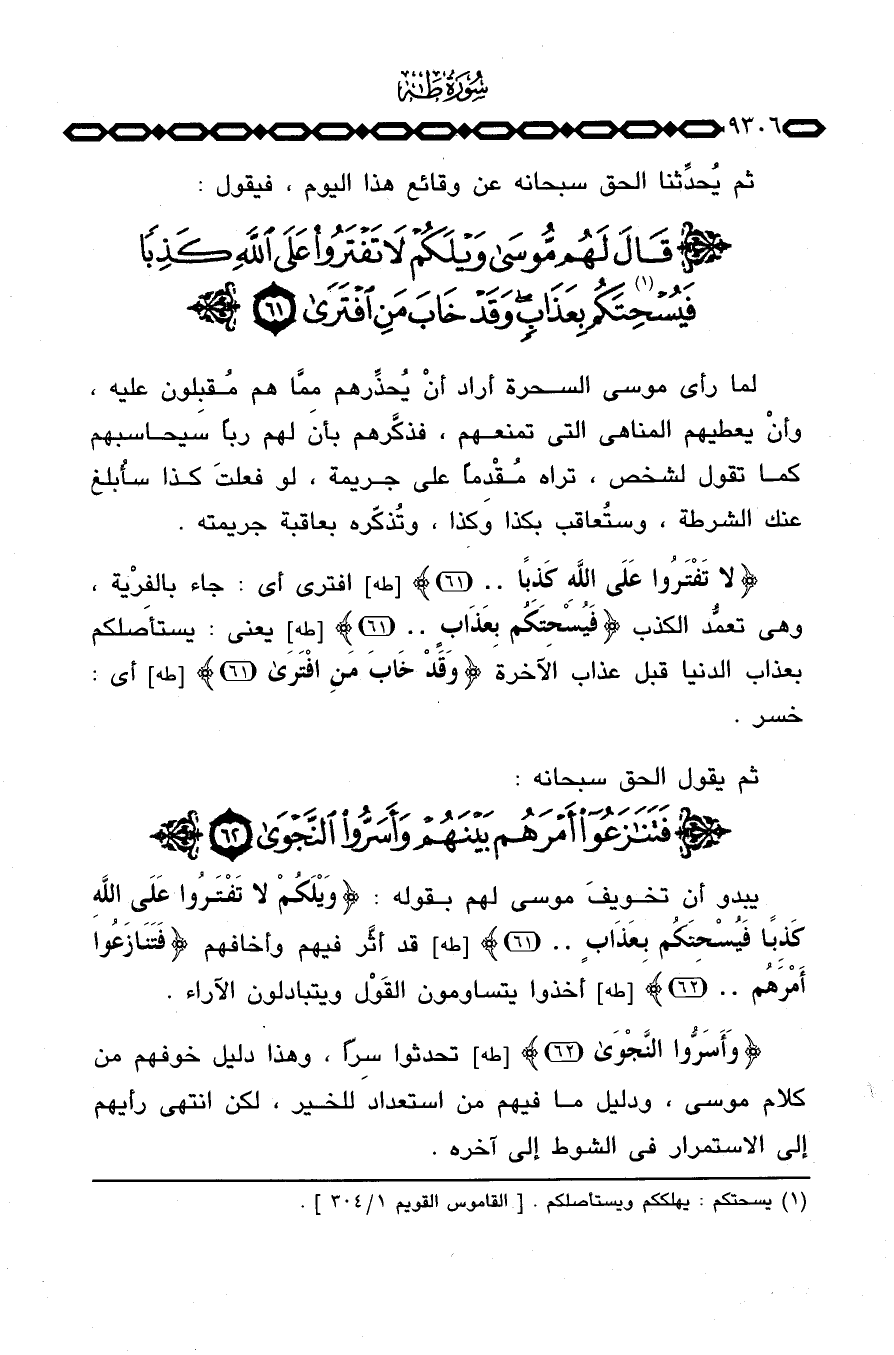 سُورَةُ طٰهٰ
٩٣٠٦
ثم يُحدِّثنا الحق سبحانه عن وقائع هذا اليوم ، فيقول :
﴿ قَالَ لَهُم مُّوسَىٰ وَيْلَكُمْ لَا تَفْتَرُوا۟ عَلَى ٱللَّهِ كَذِبًا
فَيُسْحِتَكُم (١) بِعَذَابٍ ۖ وَقَدْ خَابَ مَنِ ٱفْتَرَىٰ ٦١ ﴾
لما رأى موسى السحرة أراد أنْ يُحذِّرهم ممَّا هم مُقبِلون عليه ،
وأنْ يعطيهم المناهى التى تمنعهم ، فذكَّرهم بأن لهم رباً سيحاسبهم
كما تقول لشخص ، تراه مُقْدِماً على جريمة ، لو فعلتَ كذا سأُبلغ
عنك الشرطة ، وستُعاقب بكذا وكذا ، وتُذكِّره بعاقبة جريمته .
﴿ لا تَفْتَرُوا عَلَى اللَّهِ كَذِبًا .. (٦١) ﴾ [طه] افترى أى : جاء بالفِرْية ،
وهى تعمُّد الكذب ﴿ فَيُسْحِتَكُم بِعَذَابٍ .. (٦١) ﴾ [طه] يعنى : يستأصلكم
بعذاب الدنيا قبل عذاب الآخرة ﴿ وَقَدْ خَابَ مَنِ افْتَرَىٰ (٦١) ﴾ [طه] أى :
خسر .
ثم يقول الحق سبحانه :
﴿ فَتَنَـٰزَعُوٓا۟ أَمْرَهُم بَيْنَهُمْ وَأَسَرُّوا۟ ٱلنَّجْوَىٰ ٦٢ ﴾
يبدو أن تخويفَ موسى لهم بقوله : ﴿ وَيْلَكُمْ لا تَفْتَرُوا عَلَى اللَّهِ
كَذِبًا فَيُسْحِتَكُم بِعَذَابٍ .. (٦١) ﴾ [طه] قد أثَّر فيهم وأخافهم ﴿ فَتَنَازَعُوا
أَمْرَهُم .. (٦٢) ﴾ [طه] أخذوا يتساومون القَوْل ويتبادلون الآراء .
﴿ وَأَسَرُّوا النَّجْوَىٰ (٦٢) ﴾ [طه] تحدثوا سِراً ، وهذا دليل خوفهم من
كلام موسى ، ودليل ما فيهم من استعداد للخير ، لكن انتهى رأيهم
إلى الاستمرار فى الشوط إلى آخره .
(١) يسحتكم : يهلككم ويستأصلكم . [ القاموس القويم ٣٠٤/١ ] .